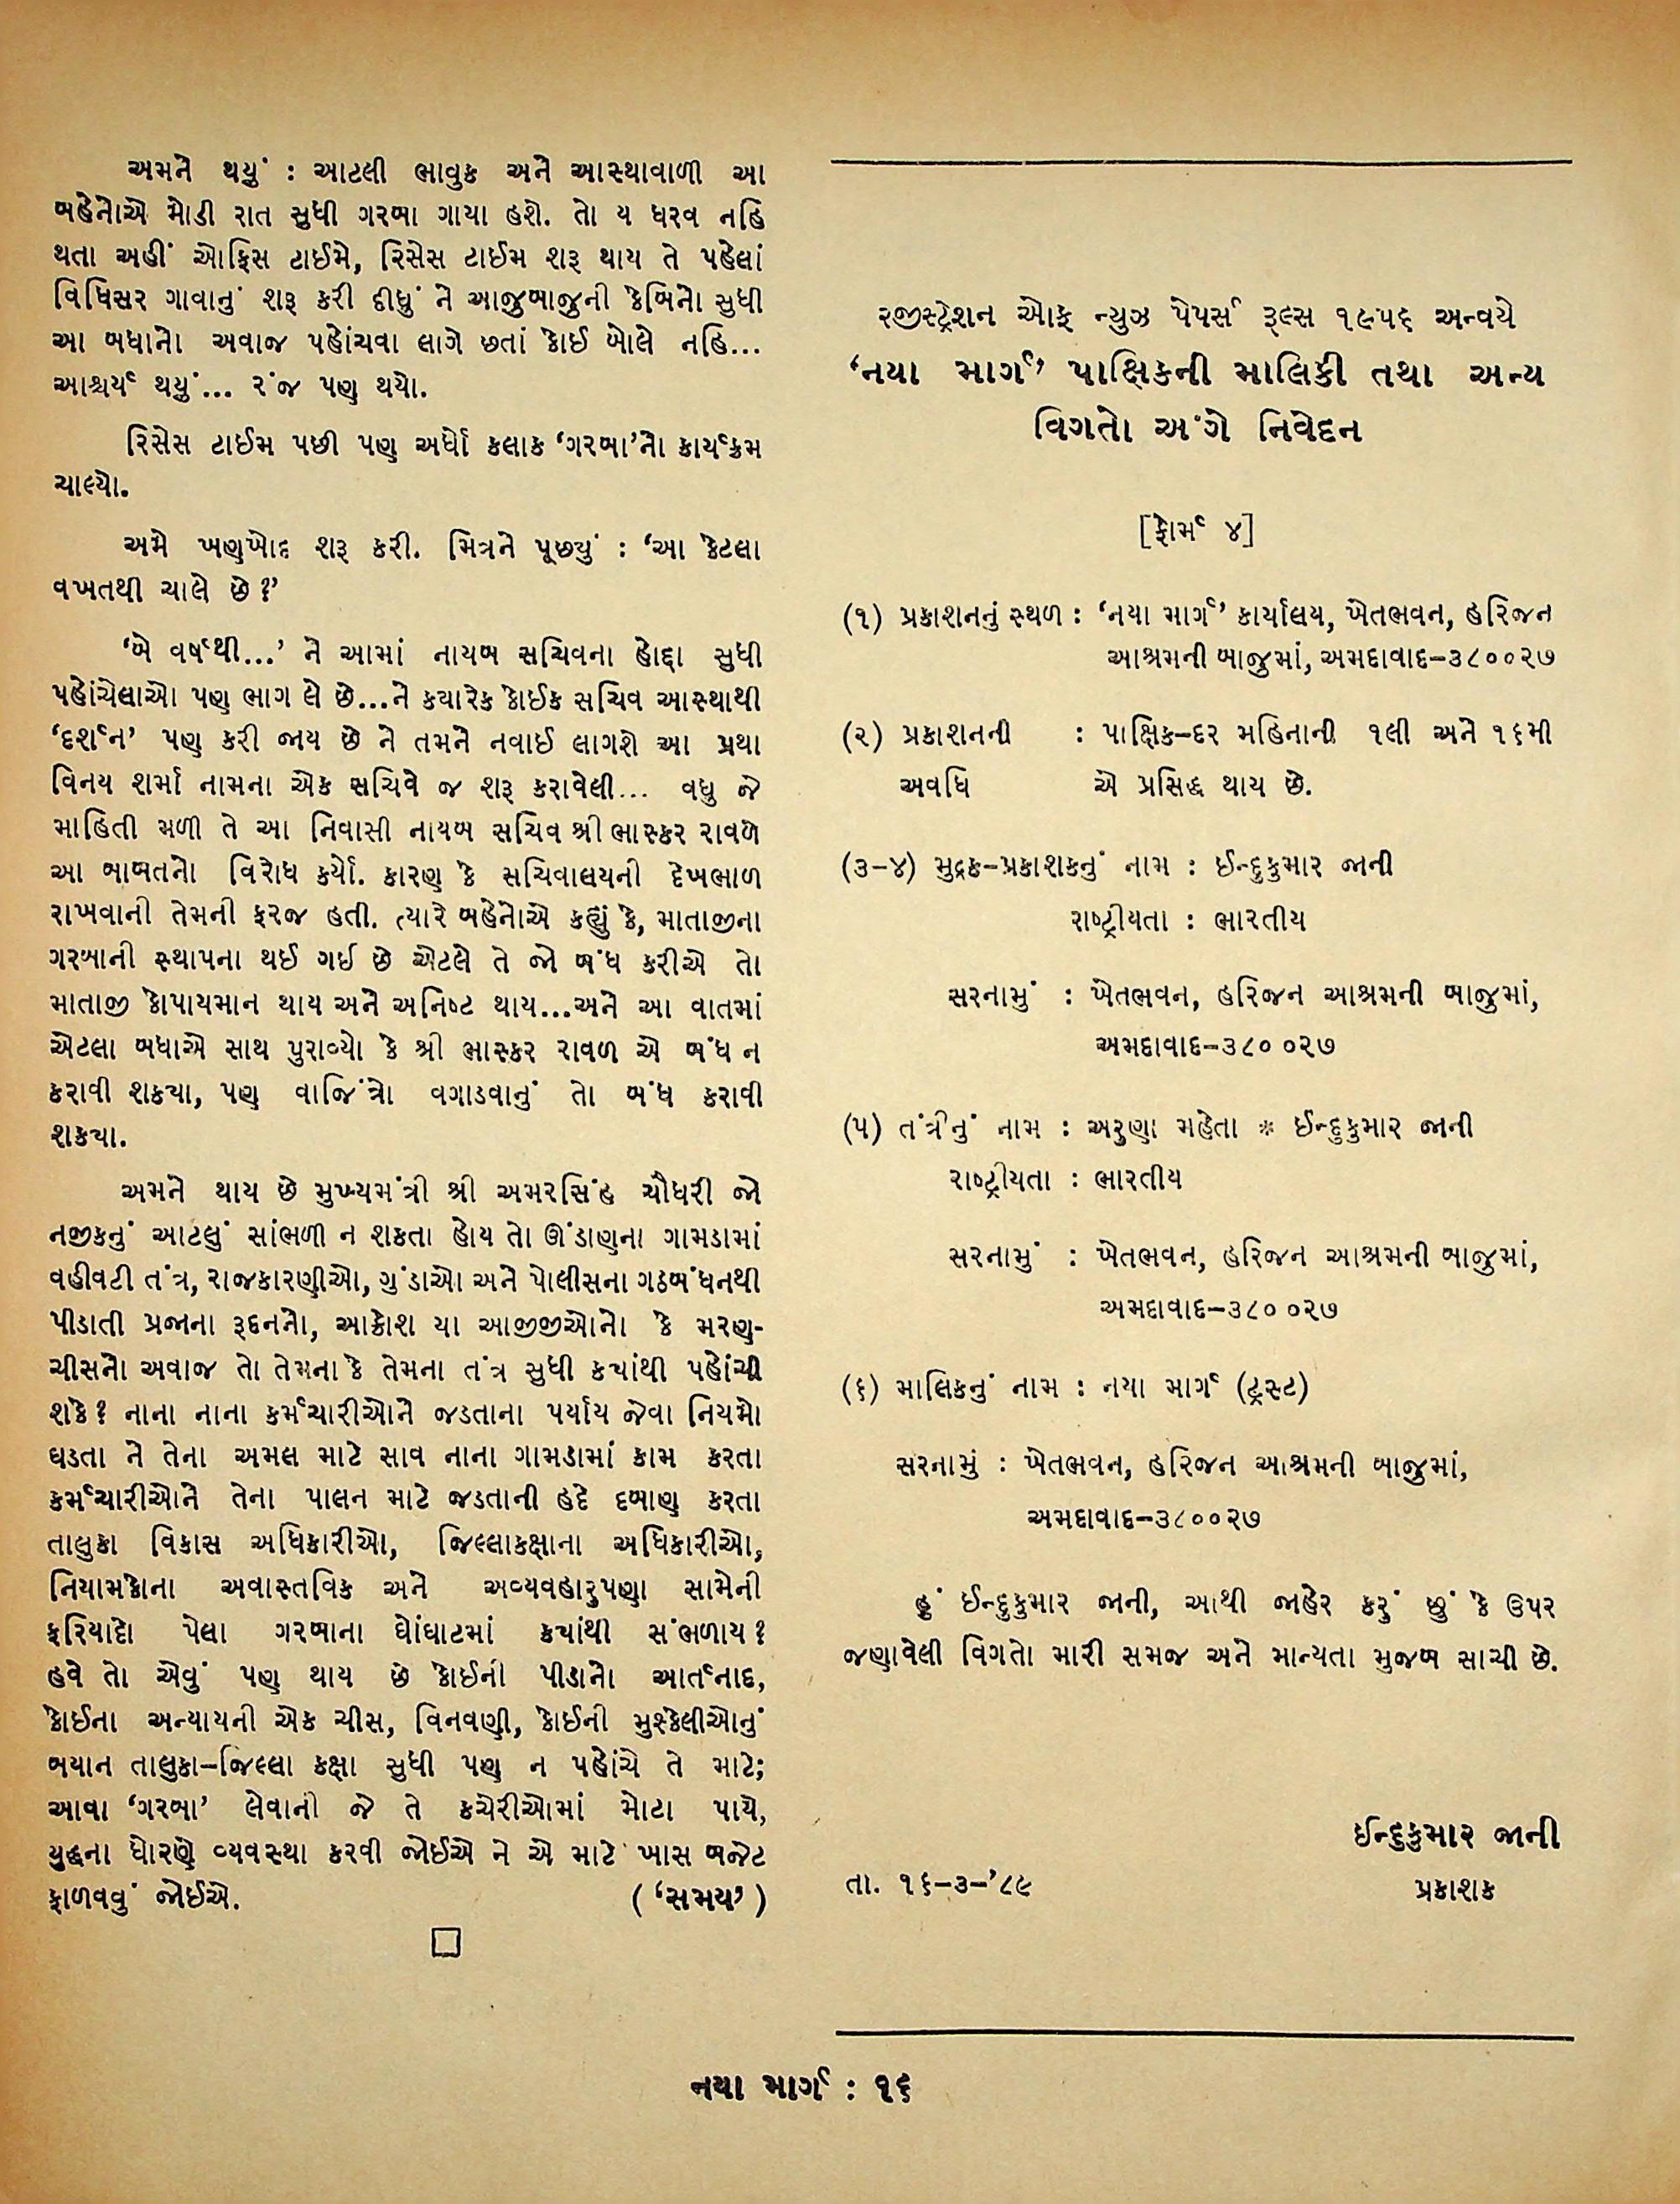 અમને થયું : આટલી ભાવુક અને આસ્થાવાળી આ
બહેનોએ મોડી રાત સુધી ગરબા ગાયા હશે. તો ય ધરવ નહિ
થતા અહીં ઓફિસ ટાઈમે, રિસેસ ટાઈમ શરૂ થાય તે પહેલાં
વિધિસર ગાવાનું શરૂ કરી દીધું ને આજુબાજુની કેબિનો સુધી
આ બધાનો અવાજ પહોંચવા લાગે છતાં કોઈ બોલે નહિ...
આશ્ચર્ય થયું... રંજ પણ થયો.
રિસેસ ટાઈમ પછી પણ અર્ધો કલાક ‘ગરબા’નો કાર્યક્રમ
ચાલ્યો.
અમે ખણખોદ શરૂ કરી. મિત્રને પૂછ્યું : ‘આ કેટલા
વખતથી ચાલે છે?’
‘બે વર્ષથી...’ ને આમાં નાયબ સચિવના હોદ્દા સુધી
પહોંચેલાઓ પણ ભાગ લે છે...ને કયારેક કોઈક સચિવ આસ્થાથી
‘દર્શન’ પણ કરી જાય છે ને તમને નવાઈ લાગશે આ પ્રથા
વિનય શર્મા નામના એક સચિવે જ શરૂ કરાવેલી... વધુ જે
માહિતી મળી તે આ નિવાસી નાયબ સચિવ શ્રી ભાસ્કર રાવળે
આ બાબતનો વિરોધ કર્યો. કારણ કે સચિવાલયની દેખભાળ
રાખવાની તેમની ફરજ હતી. ત્યારે બહેનોએ કહ્યું કે, માતાજીના
ગરબાની સ્થાપના થઈ ગઈ છે એટલે તે જો બંધ કરીએ તો
માતાજી કોપાયમાન થાય અને અનિષ્ટ થાય...અને આ વાતમાં
એટલા બધાએ સાથ પુરાવ્યો કે શ્રી ભાસ્કર રાવળ એ બંધ ન
કરાવી શકયા, પણ વાજિંત્રો વગાડવાનું તો બંધ કરાવી
શકયા.
અમને થાય છે મુખ્યમંત્રી શ્રી અમરસિંહ ચૌધરી જો
નજીકનું આટલું સાંભળી ન શકતા હોય તો ઊંડાણના ગામડામાં
વહીવટી તંત્ર, રાજકારણીઓ, ગુંડાઓ અને પોલીસના ગઠબંધનથી
પીડાતી પ્રજાના રૂદનનો, આક્રોશ યા આજીજીઓનો કે મરણ-
ચીસનો અવાજ તો તેમના કે તેમના તંત્ર સુધી કયાંથી પહોંચી
શકે? નાના નાના કર્મચારીઓને જડતાના પર્યાય જેવા નિયમો
ઘડતા ને તેના અમલ માટે સાવ નાના ગામડામાં કામ કરતા
કર્મચારીઓને તેના પાલન માટે જડતાની હદે દબાણ કરતા
તાલુકા વિકાસ અધિકારીઓ, જિલ્લાકક્ષાના અધિકારીઓ,
નિયામકોના અવાસ્તવિક અને અવ્યવહારુપણા સામેની
ફરિયાદો પેલા ગરબાના ઘોંઘાટમાં કયાંથી સંભળાય?
હવે તો એવું પણ થાય છે કોઈની પીડાનો આર્તનાદ,
કોઈના અન્યાયની એક ચીસ, વિનવણી, કોઈની મુશ્કેલીઓનું
બયાન તાલુકા–જિલ્લા કક્ષા સુધી પણ ન પહોંચે તે માટે;
આવા ‘ગરબા’ લેવાની જે તે કચેરીઓમાં મોટા પાયે,
યુદ્ધના ધોરણે વ્યવસ્થા કરવી જોઈએ ને એ માટે ખાસ બજેટ
ફાળવવું જોઈએ. (‘સમય’)
રજીસ્ટ્રેશન ઓફ ન્યુઝ પેપર્સ રૂલ્સ ૧૯૫૬ અન્વયે
‘નયા માર્ગ’ પાક્ષિકની માલિકી તથા અન્ય
વિગતો અંગે નિવેદન
[ફોર્મ ૪]
(૧) પ્રકાશનનું સ્થળ : ‘નયા માર્ગ’ કાર્યાલય, ખેતભવન, હરિજન
આશ્રમની બાજુમાં, અમદાવાદ–૩૮૦૦૨૭
(૨) પ્રકાશનની : પાક્ષિક–દર મહિનાની ૧લી અને ૧૬મી
અવધિ એ પ્રસિદ્ધ થાય છે.
(૩–૪) મુદ્રક–પ્રકાશકનું નામ : ઈન્દુકુમાર જાની
રાષ્ટ્રીયતા : ભારતીય
સરનામું : ખેતભવન, હરિજન આશ્રમની બાજુમાં,
અમદાવાદ–૩૮૦ ૦૨૭
(૫) તંત્રીનું નામ : અરુણા મહેતા * ઈન્દુકુમાર જાની
રાષ્ટ્રીયતા : ભારતીય
સરનામું : ખેતભવન, હરિજન આશ્રમની બાજુમાં,
અમદાવાદ–૩૮૦ ૦૨૭
(૬) માલિકનું નામ : નયા માર્ગ (ટ્રસ્ટ)
સરનામું : ખેતભવન, હરિજન આશ્રમની બાજુમાં,
અમદાવાદ–૩૮૦૦૨૭
હું ઈન્દુકુમાર જાની, આથી જાહેર કરું છું કે ઉપર
જણાવેલી વિગતો મારી સમજ અને માન્યતા મુજબ સાચી છે.
ઈન્દુકુમાર જાની
તા. ૧૬–૩–’૮૯ પ્રકાશક
નયા માર્ગ : ૧૬